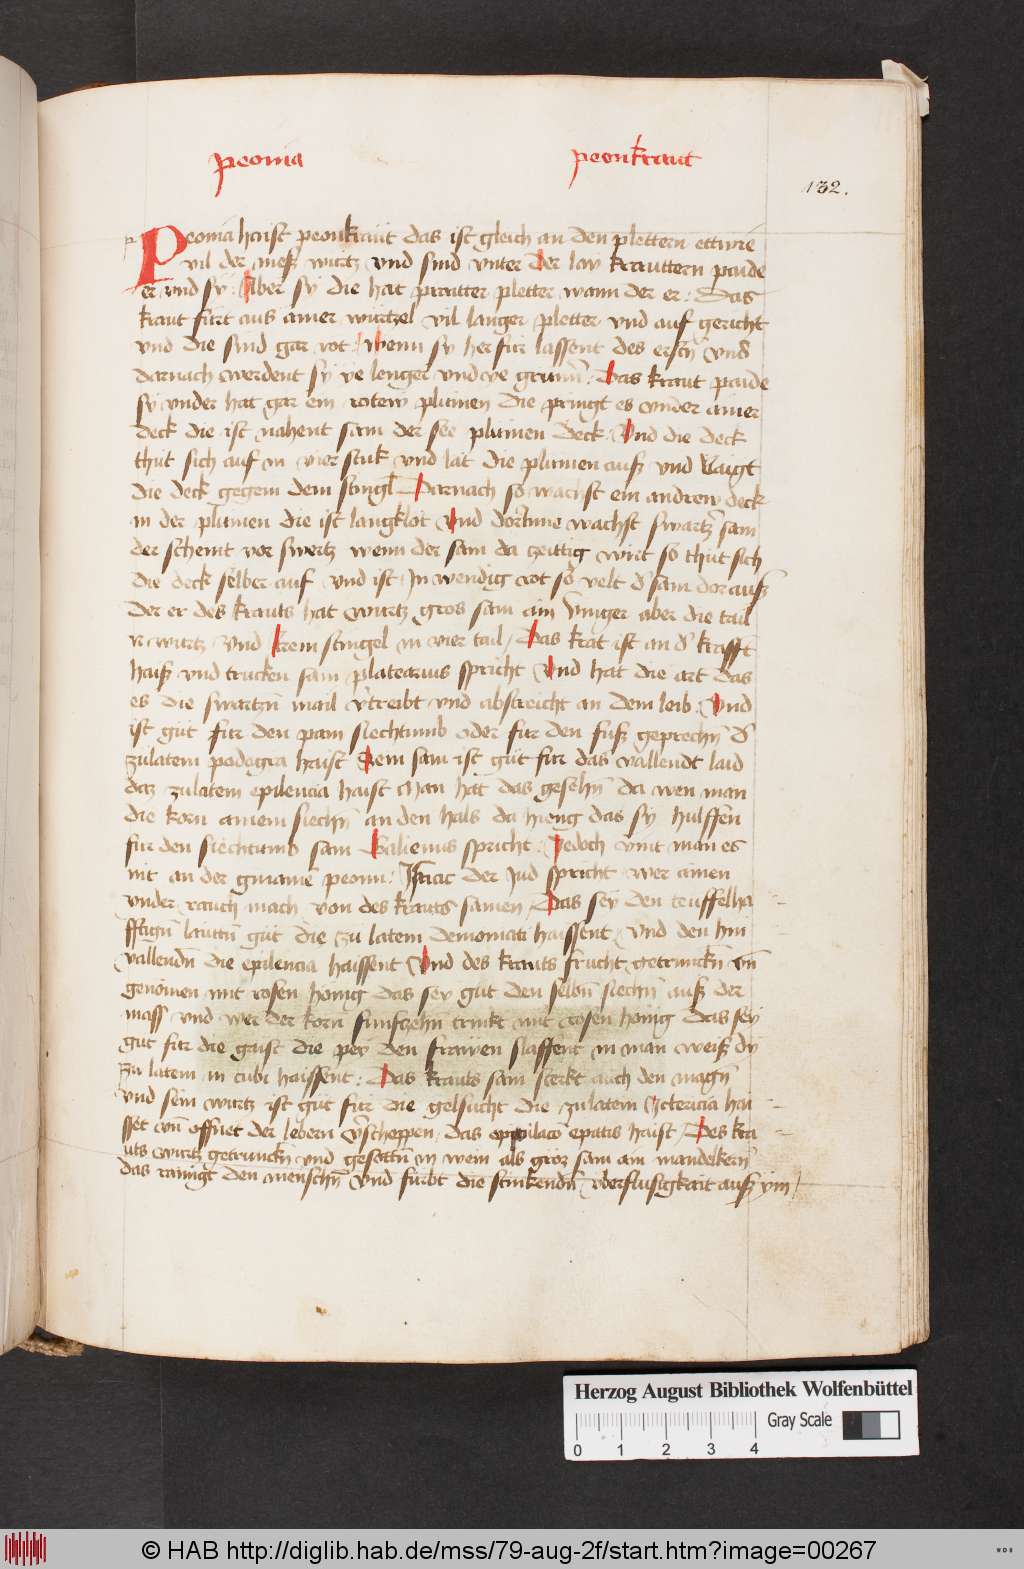 peonia peonkraut
132.
Peonia haist peonkraut das ist gleich an den plettern ettwie
vil der mess wurtz vnd sind vnter der lay krauttern paide
er vnd sy. Aber sy die hat praitter pletter wann der er. Das
kraut furt aus ainer wurtzel vil langer pletter vnd auf gericht
vnd die sind gar rot. wenn sy her fur lassent des ersten vnd
darnach werdent sy ye lenger vnd ye gruner. Das kraut paide
sy vnder hat gar ein rotew plumen die pringt es vnder ainer
deck die ist nahent sam der see plumen deck. Vnd die deck
thut sich auf in vier stuk vnd lat die plumen ausz vnd naigt
die deck gegem dem stingl Darnach so wachst ein andrew deck
in der plumen die ist langklot Vnd dorinne wachst swartz sam
der scheint vor swertz wenn der sam da zeittig wirt so thut sich
die deck selber auf vnd ist Inwendig rot so velt d sam dor ausz
Der er des krauts hat wurtz gros sam ain vinger aber die tail
wurtz vnd Irem stingel in vier tail. Das krat ist an d krafft
haisz vnd trucken sam platearius spricht Vnd hat die art das
es die swartzn mail vtreibt vnd abstreicht an dem leib. Vnd
ist gut fur den pain siechtumb oder fur den fusz geprechn d
zulatem podagra haist Sein sam ist gut fur das vallendt laid
daz zulatem epilencia haist Man hat das gesehn da wen man
die korn ainem siechn an den hals da hieng das sy hulffen
fur den siechtumb sam Galienus spricht. Jedoch vint man es
nit an der gmainen peonn. Isaac der Jud spricht wer ainen
vnder rauch mach von des krauts samen. Das sey den teuffelha
fftign lautn gut die zu latem demoniati haissent. vnd den hin
vallendn die epilencia haissent Vnd des krauts frucht getrunckn vn
genomen mit rosen honig das sey gut den selbn siechn ausz der
mass vnd wer der korn funfzehn trinkt mit rosen honig das sey
gut fur die gaist die pey den frawen slaffent in man weisz dy
zu latem in cubi haissent. Das krauts sam sterkt auch den magn
vnd sein wurtz ist gut fur die gelsucht die zulatem Ictericia hai
sset vnd offnet der lebern vscheppen das oppilacio epatis haist. Des kra
uts wurtz getrunckn vnd gesottn in wein als groz sam ain mandelkern
das rainigt den menschn vnd furbt die stinkendn vberflusigkait ausz ym
Herzog August Bibliothek Wolfenbüttel
Gray Scale
0 1 2 3 4
© HAB http://diglib.hab.de/mss/79-aug-2f/start.htm?image=00267